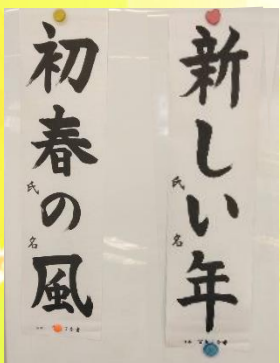 新しい年
氏名
初春の風
氏名